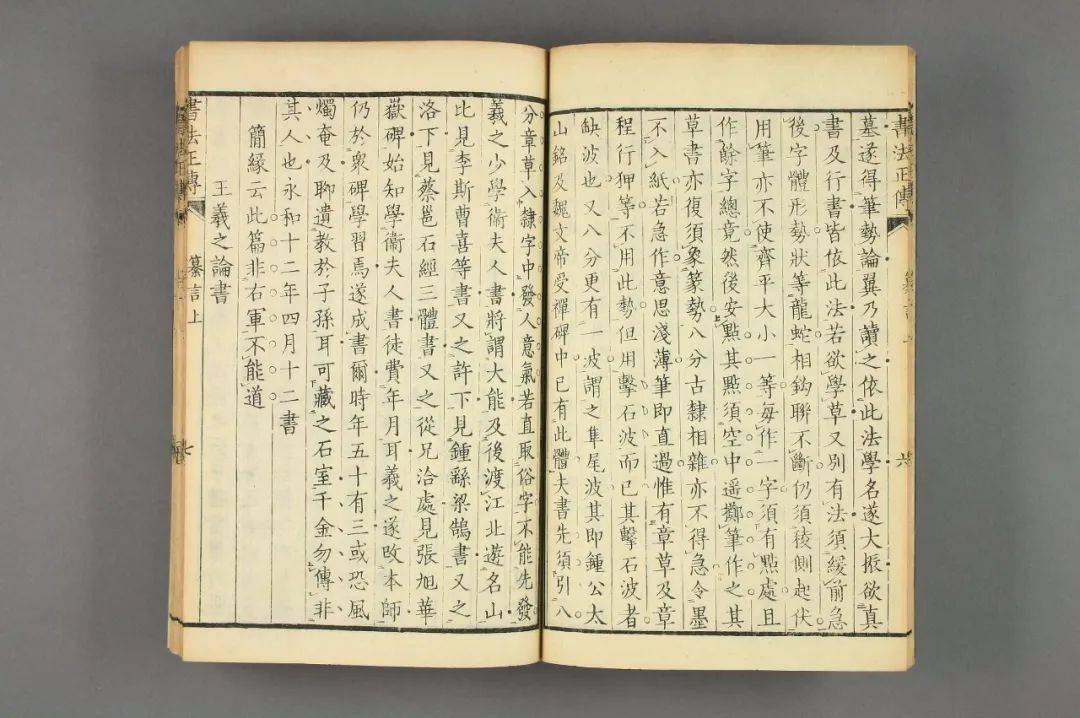 書法正傳
六
墓遂得筆勢論翼乃讀之依此法學名遂大振欲真
書及行書皆依此法若欲學草又別有法須緩前急
後字體形勢狀等龍蛇相鈎聯不斷仍須稜側起伏
用筆亦不使齊平大小一等每作一字須有點處且
作餘字總竟然後安點其點須空中遥擲筆作之其
草書亦復須象篆勢八分古隸相雜亦不得急令墨
不入紙若急作意思淺薄筆即直過惟有章草及章
程行狎等不用此勢但用擊石波而已其擊石波者
缺波也又八分更有一波謂之隼尾波其即鍾公太
山銘及魏文帝受禪碑中已有此體夫書先須引八
分章草入隸字中發人意氣若直取俗字不能先發
羲之少學衞夫人書將謂大能及後渡江北遊名山
比見李斯曹喜等書又之許下見鍾繇梁鵠書又之
洛下見蔡邕石經三體書又之從兄洽處見張旭華
嶽碑始知學衞夫人書徒費年月耳羲之遂改本師
仍於衆碑學習焉遂成書爾時年五十有三或恐風
燭奄及聊遺教於子孫耳可藏之石室千金勿傳非
其人也永和十二年四月十二書
簡緣云此篇非右軍不能道
王羲之論書
書法正傳
纂言上
七